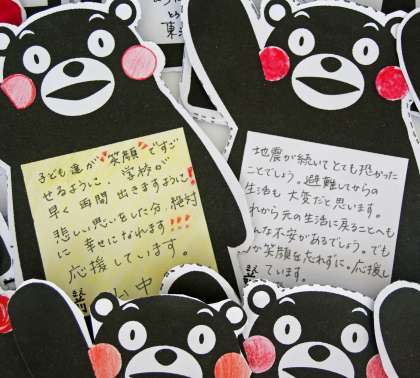 子ども達が"笑顔"ですご
せるように、学校が
早く再開出きますように!
悲しい思いをした分、絶対
に幸せになれます!!!
応援しています。
中
地震が続いてとても恐かった
ことでしょう。避難してからの
生活も大変だと思います。
れから元の生活に戻ることへも
んな不安があるでしょう。でも
か笑顔を忘れずに。応援し
ています。